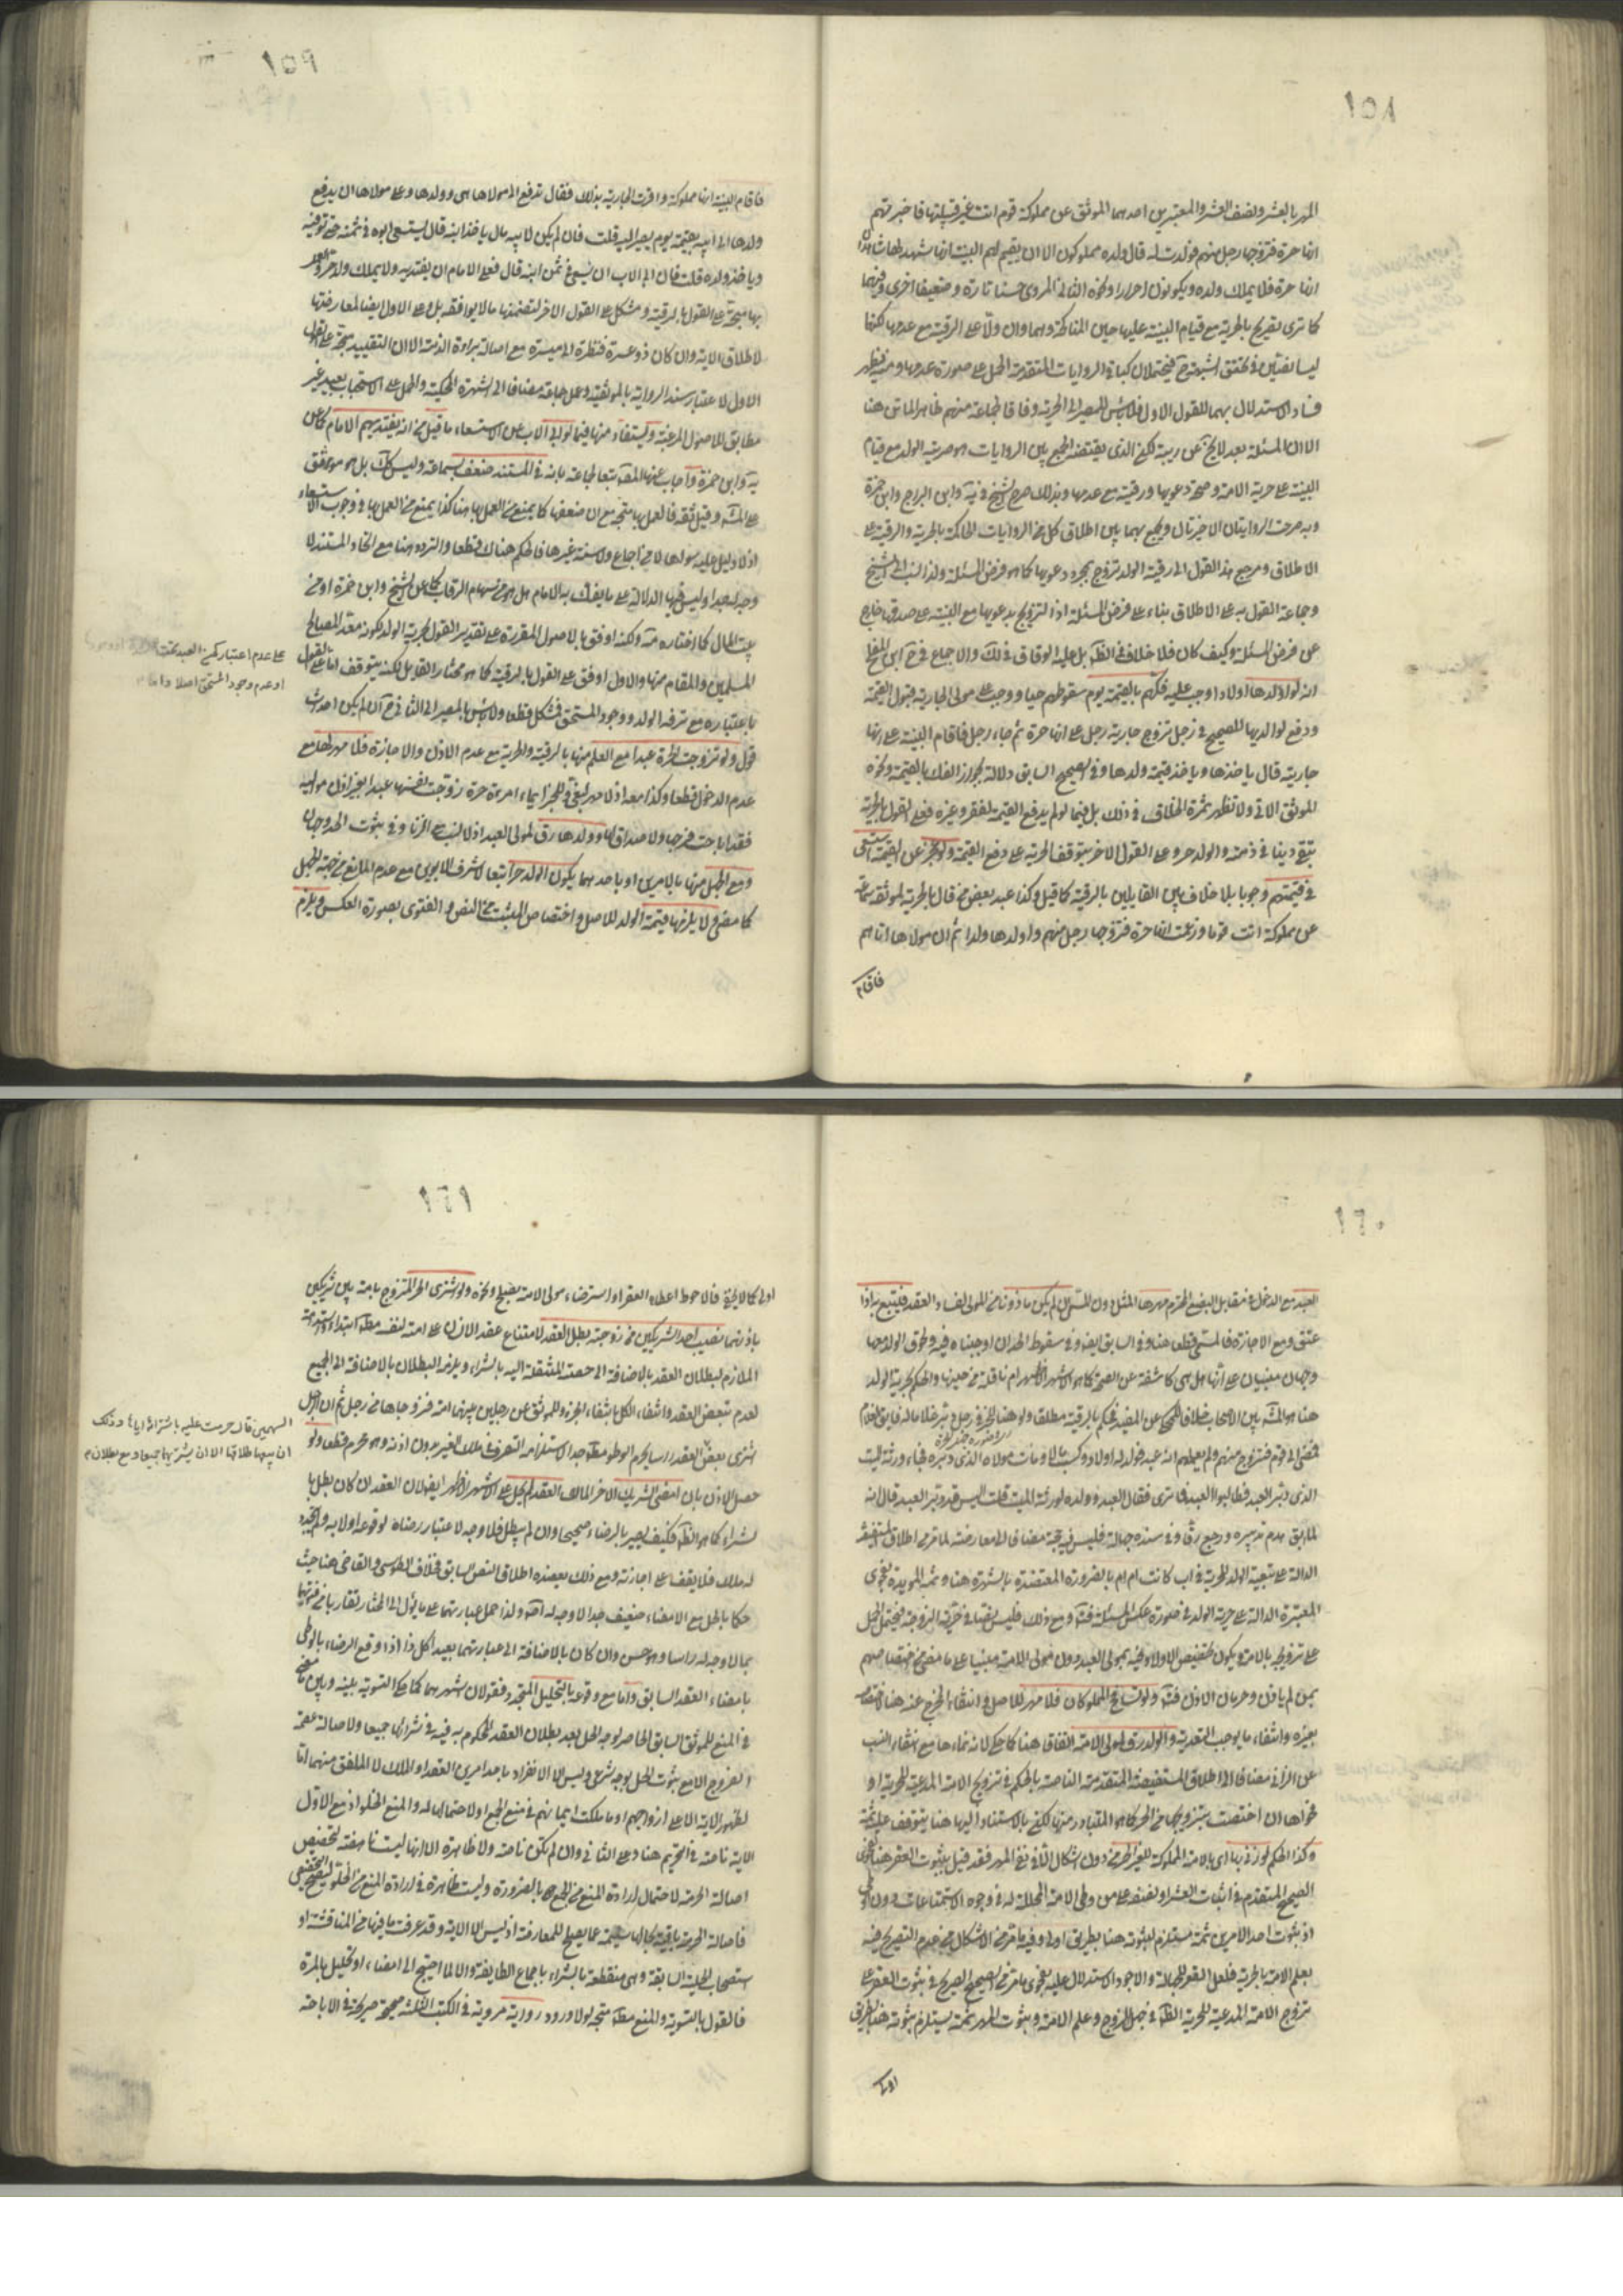 ١٥٨
المهر بالعشر ونصف العشر والمعتبرين احدهما الموثق عن مملوكة قوم اتت غير قبيلتها فاخبرتهم
انها حرة فتزوجها رجل منهم فولدت له قال ولده مملوكون الا ان يقيم لهم البينة انها شهد لها شاهد
انها حرة فلا يملك ولده ويكونون احرارا ونحوه الثاني المروي حسنا تارة وضعيفا اخرى وفيهما
كما ترى تصريح بالحرية مع قيام البينة عليها حين المناكحة وهما وان دلا على الرقية مع عدمها لكنهما
ليسا نصين في تحقق الشبهة ح فيحتملان كما في الروايات المتقدمة الحمل على صورة عدمها ومنه يظهر
فساد الاستدلال بهما للقول الاول فلا بأس للمصير الى الحرية وفاقا لجماعة منهم ظاهر الماتن هنا
الا ان المسئلة بعد لا يخ عن ريبة لكن الذي يقتضيه الجمع بين الروايات هو حرية الولد مع قيام
البينة على حرية الامة وصحة دعويها ورقيته مع عدمها وبذلك صرح الشيخ في يه وابن البراج وابن حمزة
وبه صرحت الروايتان الاخيرتان ويجمع بهما بين اطلاق كل من الروايات الحاكمة بالحرية والرقية على
الاطلاق ومرجع هذا القول الى رقية الولد تزوج بمجرد دعويها كما هو فرض المسئلة ولذا نسب الى الشيخ
وجماعة القول به على الاطلاق بناء على فرض المسئلة اذ التزويج بدعويها مع البينة على صدقها خارج
عن فرض المسئلة وكيف كان فلا خلاف في الظ بل عليه الوفاق في لك والاجماع في ح ابن المفلح
انه لو اولدها اولادا وجب عليه فكهم بالقيمة يوم سقوطهم حيا ووجب على مولى الجارية قبول القيمة
ودفع لوالديها للصحيح في رجل تزوج جارية رجل على انها حرة ثم جاء رجل فاقام البينة على انها
جاريته قال ياخذها وياخذ قيمة ولدها وفي الصحيح السابق دلالة بجواز الفك بالقيمة ونحوه
الموثق الاتي ولا تظهر ثمرة الخلاف في ذلك بل فيما لو لم يدفع القيمة لفقر وغيره فعلى القول بالحرية
تبقى دينا في ذمته والولد حر وعلى القول الاخر يتوقف الحرية على دفع القيمة ولو عجز عن القيمة استسعى
في قيمتهم وجوبا بلا خلاف بين القايلين بالرقية كما قيل وكذا عبد بعض من قال بالحرية لموثقة سماعة
عن مملوكة اتت قوما وزعمت انها حرة فتزوجها رجل منهم واولدها ولدا ثم ان مولاها اتاهم
فاقام
١٥٩
فاقام البينة انها مملوكة واقرت الجارية بذلك فقال تدفع الى مولاها هي وولدها وعلى مولاها ان يدفع
ولدها الى ابيه بقيمته يوم يصير اليه قلت فان لم يكن لابيه مال ياخذ ابنه قال يستسعى ابوه في ثمنه حتى توفيه
وياخذ ولده قلت فان ابى الاب ان يسعى في ثمن ابنه قال فعلى الامام ان يفتديه ولا يملك ولد حر والعمل
بها متجه على القول بالرقية ومشكل على القول الاخر لتضمنها ما لا يوافقه بل وعلى الاول ايضا لمعارضتها
لاطلاق الاية وان كان ذو عسرة فنظرة الى ميسرة مع اصالة براءة الذمة الا ان التقييد متجه على القول
الاول لاعتبار سند الرواية بالموثقية وعمل جماعة مضافا الى الشهرة المحكية والحمل على الاستحباب بعيد غير
مطابق للاصول المرعية ويستفاد منها فيما لو ابى الاب عن الاستسعاء ما قيل من انه يفتديهم الامام كما عن
يه وابن حمزة واجاب عنها المص تبعا لجماعة بانه في المستند ضعف بسماعة وليس كك بل هو موثق
على المش وقيل ثقة فالعمل بها متجه مع ان ضعفها كما يمنع من العمل بها هنا كذا يمنع من العمل بها في وجوب الاستسعاء
اذ لا دليل عليه سواها لا من اجماع ولا سنة غيرها فالحكم هناك قطعا والتردد هنا مع اتحاد المستند لا
وجه له جدا وليس فيها الدلالة على ما يفك به الامام هل هو من سهام الرقاب كما عن الشيخ وابن حمزة او من
بيت المال كما اختاره مة ولكنه اوفق بالاصول المقررة على تقدير القول بحرية الولد لكونه معد المصالح
المسلمين والمقام منها والاول اوفق على القول بالرقية كما هو مختار القايل لكنه يتوقف اما على القول
على عدم اعتبار كون العبد تحت
او عدم وجود المستحق اصلا واما
باعتباره مع ترفه الولد ووجود المستحق فمشكل قطعا ولا بأس بالمصير الى الثاني ح ان لم يكن احدث
قول ولو تزوجت الحرة عبدا مع العلم منها بالرقية والحرية مع عدم الاذن والاجازة فلا مهر لها مع
عدم الدخول قطعا وكذا معه اذ لا مهر لبغي وللخبر ايما امرءة حرة زوجت نفسها عبدا بغير اذن مواليه
فقد اباحت فرجها ولا صداق لها وولدها رق لمولى العبد اذ لا نسب على الزنا وفي ثبوت الحد وجهان
ومع الجهل منها بالامرين او باحدهما يكون الولد حرا تبعا لاشرف الابوين مع عدم المانع من جهة الجهل
كما مضى ولا يلزمها قيمة الولد للاصل واختصاص المثبت من النص والفتوى بصورة العكس ويلزم
١٦٠
العبد مع الدخول في مقابل البضع المحترم مهرها المثل دون المسمى ان لم يكن ماذونا من المولى لفساد العقد فيتبع به اذا
عتق ومع الاجازة فالمسمى قطعا هنا وفي السابق ايضا وفي سقوط الحد ان اوجبناه فيه ولحوق الولد بها
وجهان مبنيان على انها هل هي كاشفة عن الصحة كما هو الاشهر الاظهر ام ناقلة من حينها والحكم بحرية الولد
هنا هو المش بين الاصحاب خلافا للمحكي عن المفيد فحكم بالرقية مطلقا ولو هنا للخبر في رجل دبر غلاما له فابق الغلام
فمضى الى قوم فتزوج منهم ولم يعلمهم انه عبد فولد له اولاد وكسب مالا ومات مولاه الذي دبره فجاء ورثة الميت
الذي دبر العبد فطالبوا العبد فما ترى فقال العبد وولده لورثة الميت قلت اليس قد دبر العبد قال انه
لما ابق هدم تدبيره ورجع رقا وفي سنده جهالة فليس فيه حجة مضافا الى معارضته لما مر من اطلاق المستفيضة
الدالة على تبعية الولد للحرية في اب كانت ام ام بالضرورة المعتضدة بالشهرة هنا وثمة المويدة بفحوى
المعتبرة الدالة على حرية الولد في صورة عكس المسئلة فت ومع ذلك فليس نصا في حرية الزوجة فيحتمل الحمل
على تزويجه بالامة ويكون تخصيص الاولاد فيه بمولى العبد دون مولى الامة مبنيا على ما مضى من اختصاصهم
بمن لم ياذن وحرمان الاذن فت ولو تسافح المملوكان فلا مهر للاصل وانتفاء المخرج عنه هنا لاختصاصه
بغيره وانتفاء ما يوجب التعدية والولد رق لمولى الامة اتفاقا هنا كما حكي لانه نماءها مع انتفاء النسب
عن الزاني مضافا الى اطلاق المستفيضة المتقدمة الناصة بالحكم في تزويج الامة المدعية للحرية او
فحواها ان اختصت بتزويجها من الحر كما هو المتبادر منها لكن بالاستناد اليها هنا يتوقف عليه ثمة
وكذا الحكم لو زنى بها اي بالامة المملوكة للغير الحر من دون اشكال الا في نفي المهر فقد قيل بثبوت العقر هنا لفحوى
الصحيح المتقدم في اثبات العشر او نصفه على من وطى الامة المحللة له في وجوه الاستمتاعات دون الوطي
اذ ثبوت احد الامرين ثمة مستلزم لثبوته هنا بطريق اولى وفيه ما مر من الاشكال من عدم التصريح فيه
بعلم الامة بالحرمة فلعل العقر للجهالة والاجود الاستدلال عليه بفحوى ما مر من الصحيح الصريح في ثبوت العقر على
تزوج الامة المدعية للحرية الظ في جهل الزوج وعلم الامة وثبوت المهر ثمة يستلزم ثبوته هنا بطريق
اولى
١٦١
اولى كما لا يخفى فالاحوط اعطاء العقر او استرضاء مولى الامة بصلح ونحوه ولو اشترى الحر المتزوج بامة بين شريكين
باذنهما نصيب احد الشريكين من زوجته بطل العقد لامتناع عقد الانسان على امته لنفسه مطلقا ابتداء واستدامة
الملازم لبطلان العقد بالاضافة الى حصته المنتقلة اليه بالشراء ويلزمه البطلان بالاضافة الى الجميع
لعدم تبعض العقد وانتفاء الكل بانتفاء الجزء وللموثق عن رجلين بينهما امة فزوجاها من رجل ثم ان الرجل
السهمين قال حرمت عليه باشترائه اياها وذلك
ان بيعها طلاقها الا ان يشتريهما جميعا ومع بطلان
اشترى بعض العقد راسا يحرم الوطؤ مطلقا جدا لاستلزامه التصرف في ملك الغير بدون اذنه وهو محرم قطعا ولو
حصل الاذن بان امضى الشريك الاخر المالك العقد لم يحل على الاشهر الاظهر ايضا لان العقد ان كان بطل با
لشراء كما هو الظ فكيف يصير بالرضاء صحيحا وان لم يبطل فلا وجه لاعتبار رضاه لوقوعه اولا به ولم يتجدد
له ملك فلا يقف على اجازته ومع ذلك يعضده اطلاق النص السابق فخلاف الطوسي والقاضي هنا حيث
حكما بالحل مع الامضاء ضعيف جدا لا وجه له اص ولذا حمل عبارتهما على ما يؤل الى المختار تفاريا من نسبتهما
بما لا وجه له راسا وهو حسن وان كان بالاضافة الى عبارتهما بعيدا كل ذا اذا وقع الرضاء بالوطي
بامضاء العقد السابق واما مع وقوعه بالتحليل المتجدد فقولان اشهرهما كما حكي التسوية بينه وبين ما مضى
في المنع للموثق السابق الحاصر لوجه الحل بعد بطلان العقد المحكوم به فيه في شرائها جميعا ولاصالة عصمة
الفروج الا مع ثبوت الحل بوجه شرعي وليس الا الانفراد باحد امرين العقد او الملك لا الملفق منهما اتا
لظهور الاية الا على ازواجهم او ما ملكت ايمانهم في منع الجمع او لاحتمالها له والمنع الخلو اذ مع الاول
الاية ناصة في التحريم هنا وعلى الثاني وان لم تكن ناصة ولا ظاهرة الا انها ليست ناهضة لتخصيص
اصالة الحرمة لاحتمال ارادة المنع من الجمع بالضرورة وليست ظاهرة في ارادة المنع من الخلو ليصح التخصيص
فاصالة الحرمة باقية بحالها سليمة عما يصلح للمعارضة اذ ليس الا الاية وقد عرفت ما فيها من المناقشة او
استصحاب الحلية السابقة وهي منقطعة بالشراء باجماع الطايفة والا لما احتيج الى امضاء او تحليل بالمرة
فالقول بالتسوية والمنع مطلقا متجه لولا ورود رواية مروية في الكتب الثلثة صحيحة صريحة في الاباحة